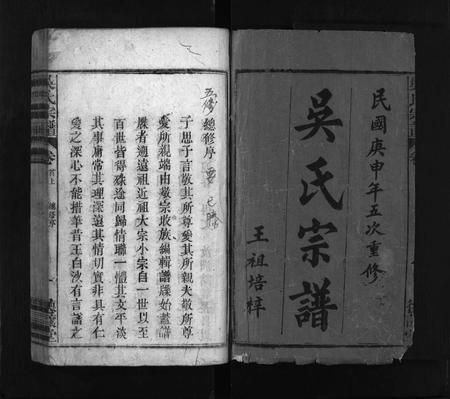 民國庚申年五次重修
吳氏宗譜
王祖培梓
五修總修序
子思子言敬其所尊愛其所親夫敬所尊
愛所親端由敬宗收族編輯譜牒始蓋譜
牒者遡遠祖近祖大宗小宗自一世以至
百世皆得殊途同歸情聯一體其文平淡
其事庸常其理深遠其情切實非具有仁
愛之深心不能措筆昔王白沙有言譜之
吳氏宗譜
卷首上
總修序
一